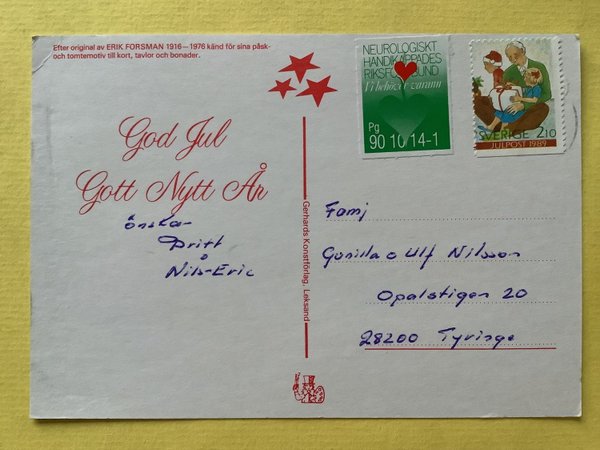 Efter original av ERIK FORSMAN 1916–1976 känd för sina påsk-
och tomtemotiv till kort, tavlor och bonader.
NEUROLOGISKT
HANDIKAPPADES
RIKSFÖRBUND
Vi behöver varann
Pg
90 10 14-1
SVERIGE 2.10
JULPOST 1989
God Jul
Gott Nytt År
önskar
Britt
å
Nils-Eric
Gerhards Konstförlag, Leksand
Famj
Gunilla o Ulf Nilsson
Opalstigen 20
28200 Tyringe